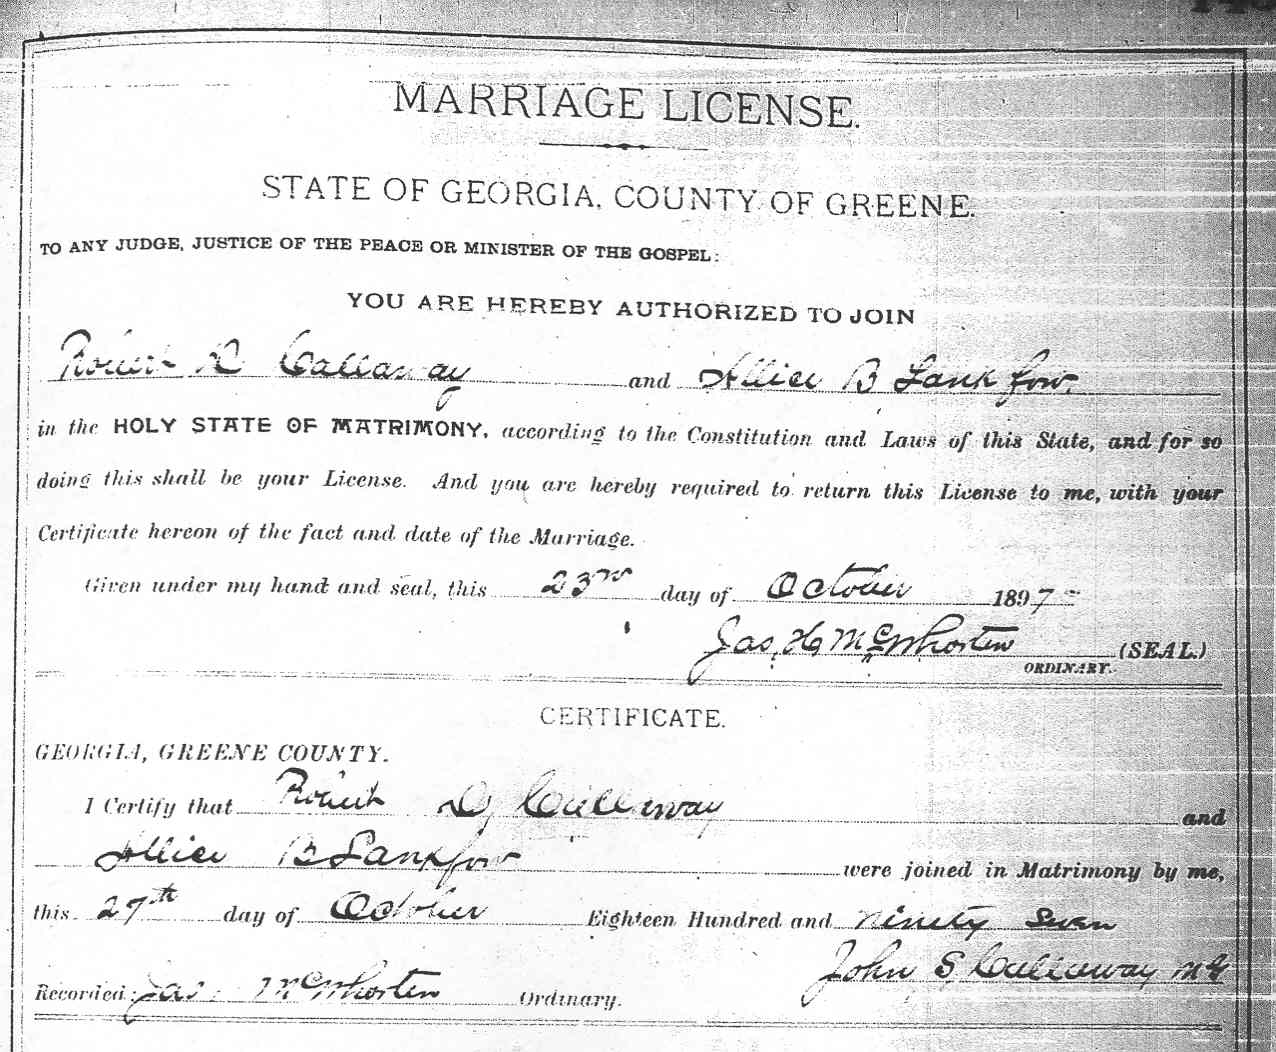 MARRIAGE LICENSE.
STATE OF GEORGIA, COUNTY OF GREENE.
TO ANY JUDGE, JUSTICE OF THE PEACE OR MINISTER OF THE GOSPEL:
YOU ARE HEREBY AUTHORIZED TO JOIN
Robert D Callaway and Allice B Lankford
in the HOLY STATE OF MATRIMONY, according to the Constitution and Laws of this State, and for so
doing this shall be your License. And you are hereby required to return this License to me, with your
Certificate hereon of the fact and date of the Marriage.
Given under my hand and seal, this 23rd day of October 1897
Jas. H. McWhorter (SEAL.)
ORDINARY.
CERTIFICATE.
GEORGIA, GREENE COUNTY.
I Certify that Robert D, Callaway and
Allice B Lankford were joined in Matrimony by me,
this 27th day of October Eighteen Hundred and ninety seven
John S, Callaway MG
Recorded: Jas. McWhorter Ordinary.